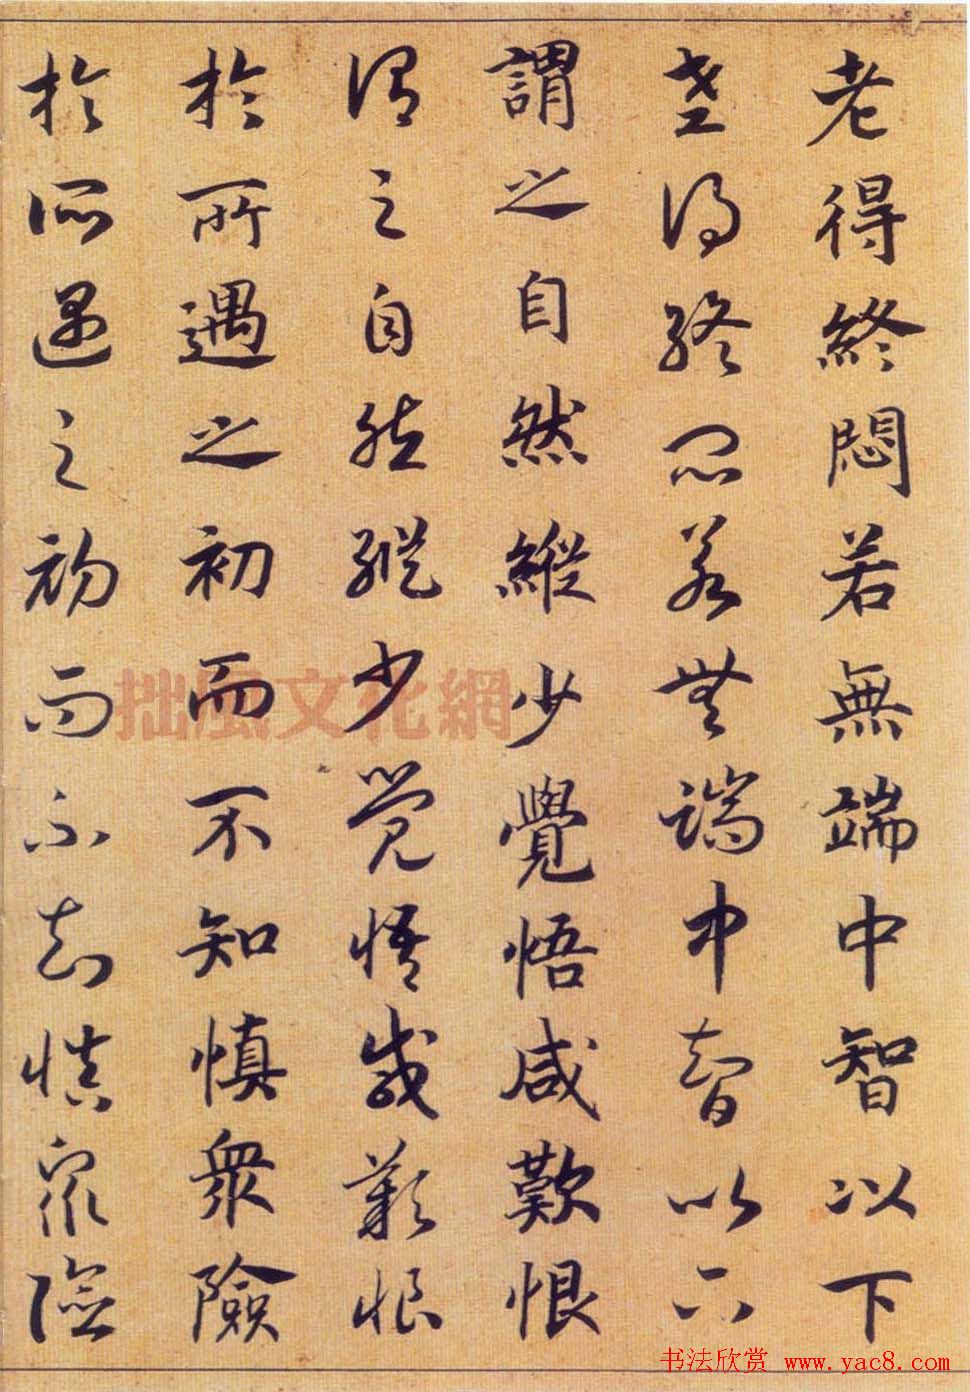 老得終悶若無端中智以下
老得終悶若無端中智以下
謂之自然縱少覺悟咸歎恨
謂之自然縱少覺悟咸歎恨
於所遇之初而不知慎眾險
於所遇之初而不知慎眾險
拙風文化網
书法欣赏 www.yac8.com